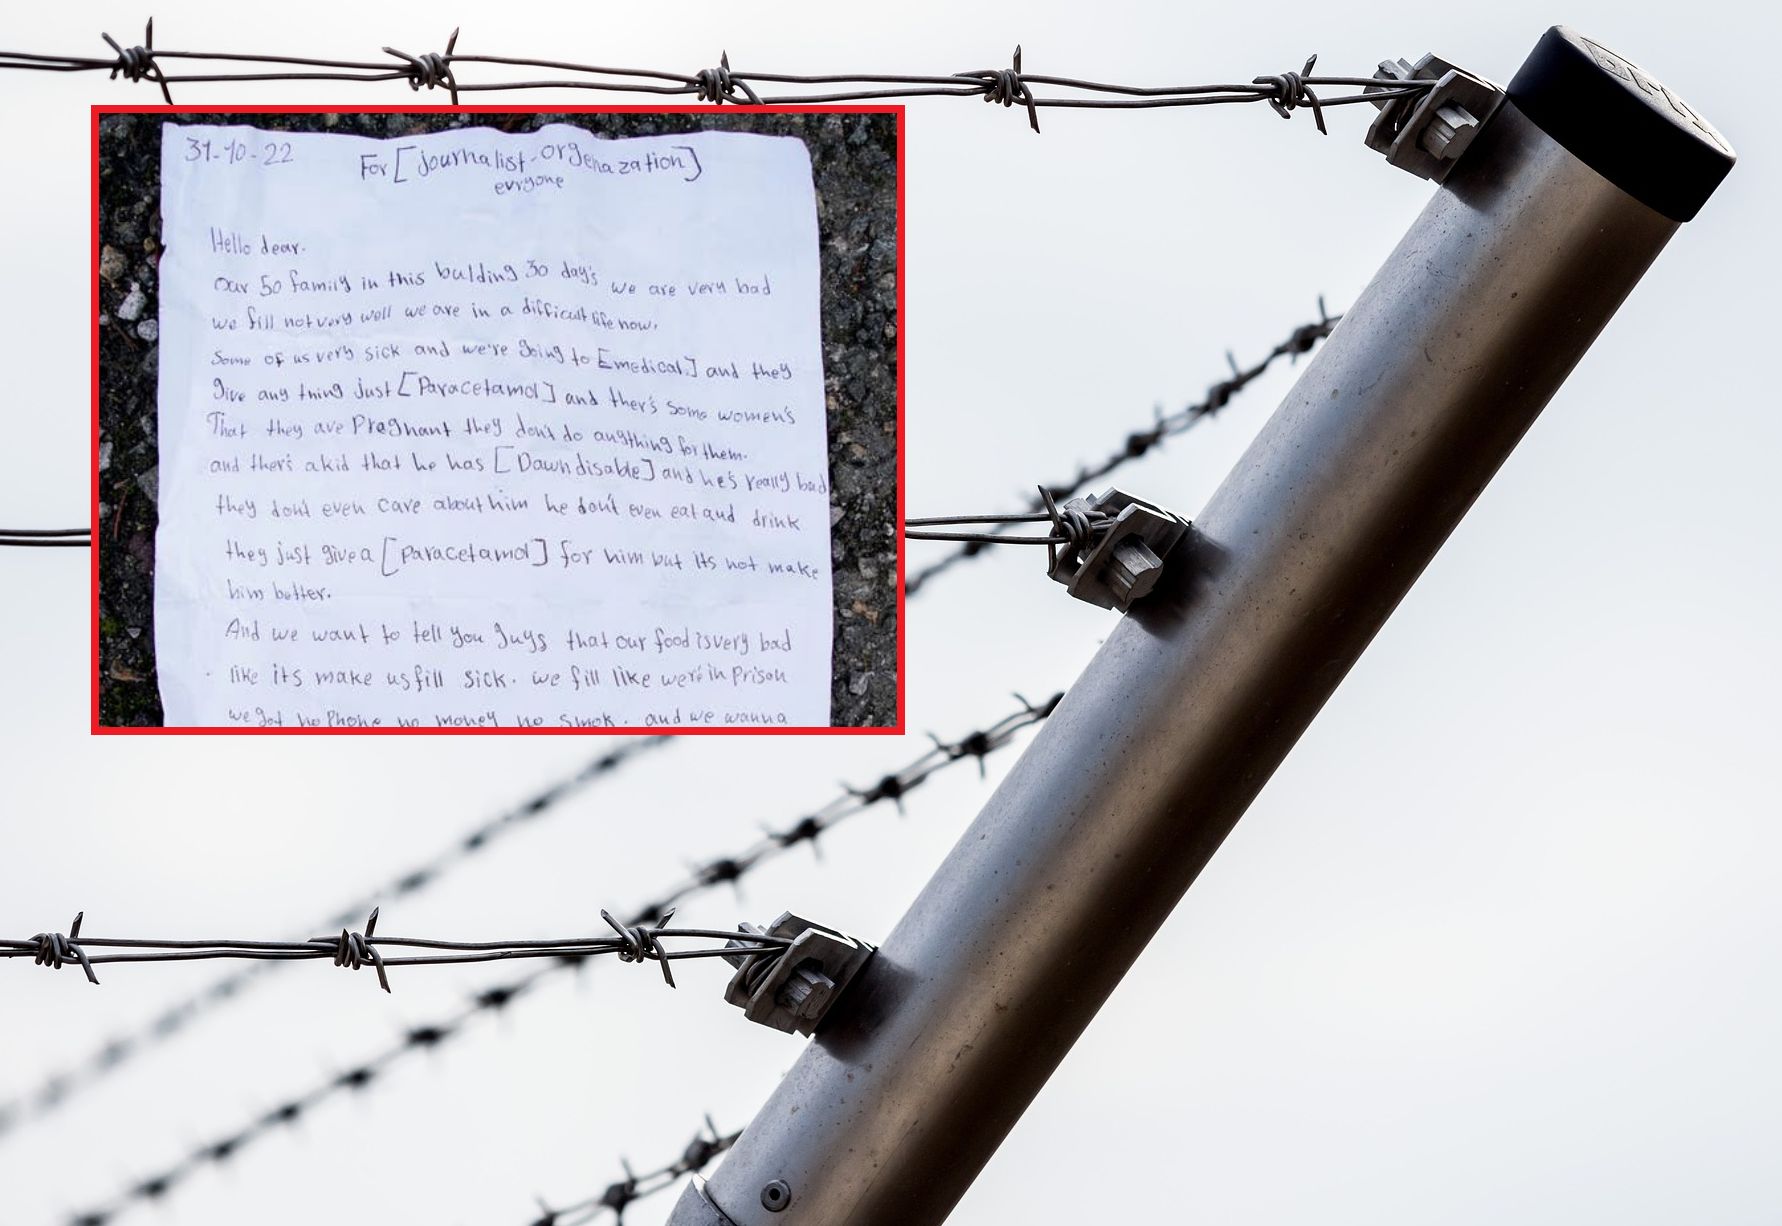 31-10-22
For [journalist-orgenazation]
evryone
Hello dear.
Our 50 family in this bulding 30 day's we are very bad
we fill not very well we are in a difficult life now.
Some of us very sick and we're going to [medical.] and they
give any thing just [Paracetamol] and ther's some women's
That they are Pregnant they don't do anything for them.
and ther's a kid that he has [Dawn disable] and he's really bad
they don't even care about him he don't even eat and drink
they just give a [paracetamol] for him but its not make
him better.
And we want to tell you guys that our food is very bad
like its make us fill sick. we fill like we're in Prison
we got no Phone no money no smok. and we wanna